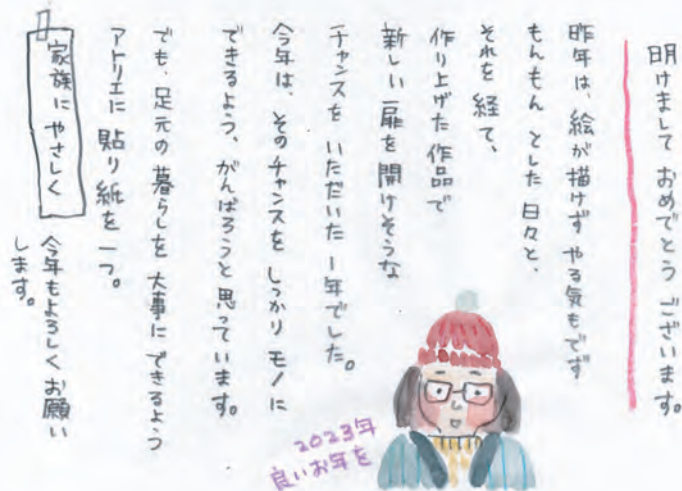 明けまして おめでとう ございます。
昨年は、絵が描けず やる気もでず
もんもん とした 日々と、
それを 経て、
作り上げた 作品で
新しい 扉を 開けそうな
チャンスを いただいた 1年でした。
今年は、そのチャンスを しっかり モノに
できるよう、がんばろうと 思っています。
でも、足元の 暮らしを 大事に できるよう
アトリエに 貼り紙を 一つ。
家族に やさしく
今年もよろしく お願い
します。
2023年
良いお年を